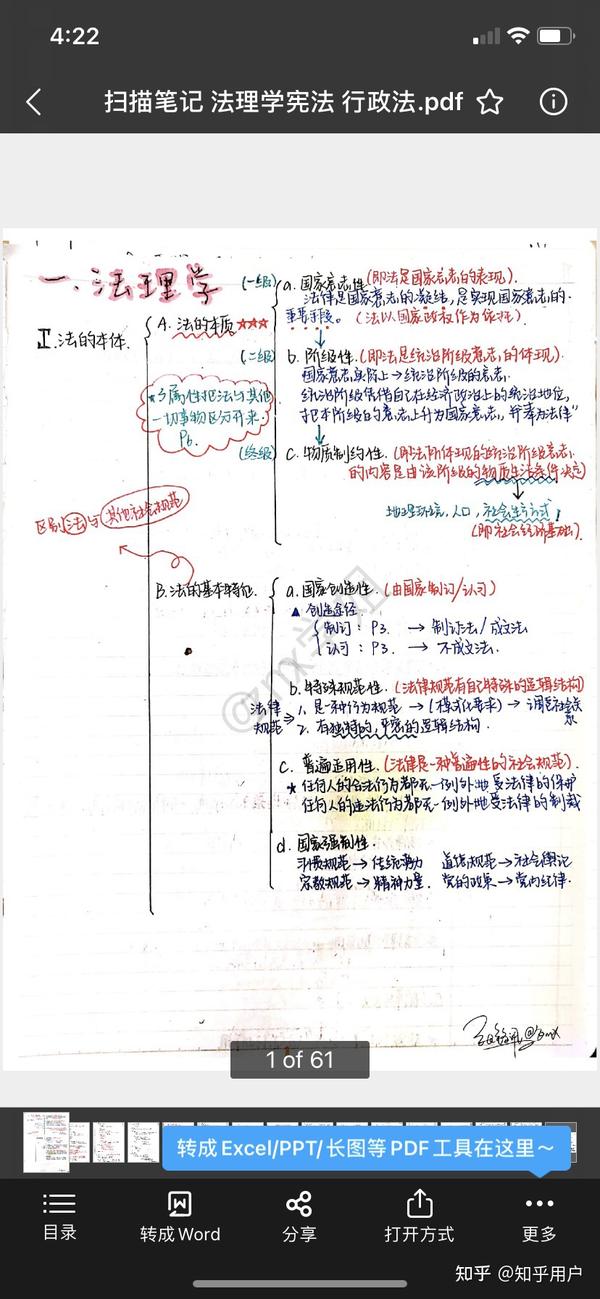 4:22
扫描笔记 法理学宪法 行政法.pdf
一.法理学
I.法的本体.
A.法的本质★★★
(一级)
a.国家意志性(即法是国家意志的表现).
法律是国家意志的凝结,是实现国家意志的
重要手段。(法以国家政权作为保证)
(二级)
b.阶级性.(即法是统治阶级意志的体现).
国家意志实际上→统治阶级的意志.
统治阶级凭借自己在经济政治上的统治地位,
把本阶级的意志上升为国家意志,并奉为法律"
★3属性把法与其他
一切事物区分开来.
P6.
(终级)
c.物质制约性.(即法所体现的统治阶级意志
的内容是由该阶级的物质生活条件决定)
地理环境,人口,社会生产方式
(即社会经济基础).
区别法与其他社会规范
B.法的基本特征.
a.国家创造性.(由国家制订/认可)
▲创造途径
制订:P3.→制订法/成文法
认可:P3.→不成文法.
b.特殊规范性.(法律规范有自己特殊的逻辑结构)
法律规范⇒
1.是一种行为规范→(模式化要求)→调整社会关系
2.有独特的,严密的逻辑结构.
c.普遍适用性.(法律是一种普遍性的社会规范).
★任何人的合法行为都无一例外地受法律的保护
任何人的违法行为都无一例外地受法律的制裁
d.国家强制性.
习惯规范→传统势力 道德规范→社会舆论
宗教规范→精神力量. 党的政策→党内纪律.
@zmx学姐
1 of 61
转成Excel/PPT/长图等PDF工具在这里～
目录
转成Word
分享
打开方式
更多
知乎 @知乎用户